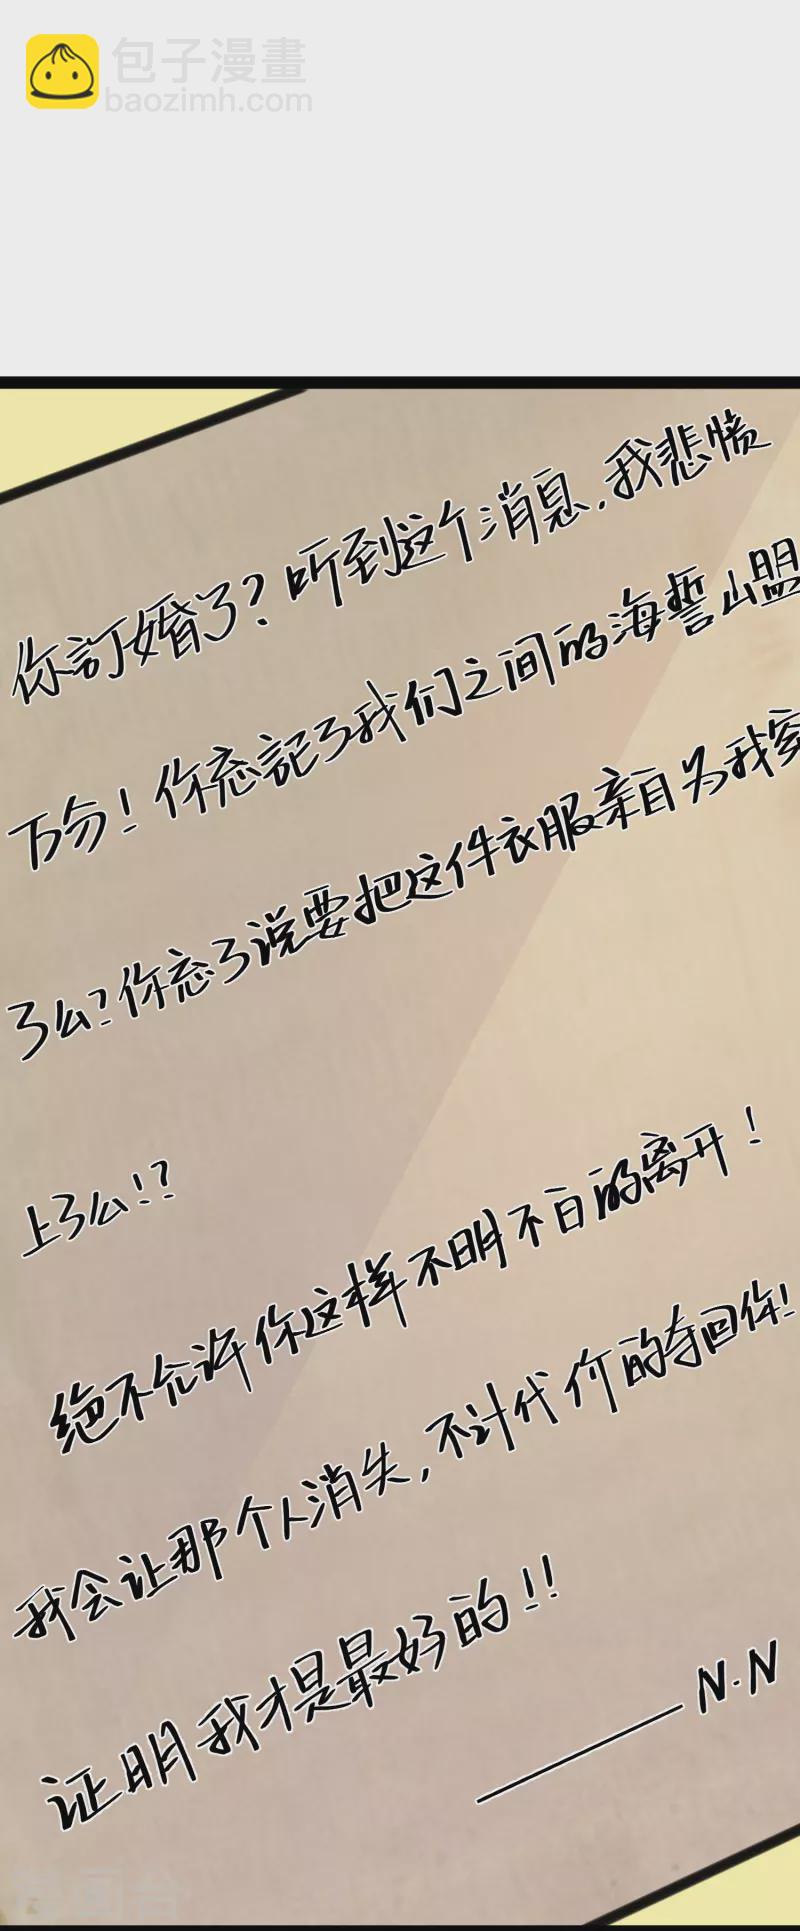 包子漫畫
baozimh.com
你訂婚了?听到这个消息,我悲愤
万分!你忘記了我们之间的海誓山盟
了么?你忘了说要把这件衣服亲自为我穿
上了么!?
绝不允许你这样不明不白的离开!
我会让那个人消失,不计代价的夺回你!
证明我才是最好的!!
——N·N